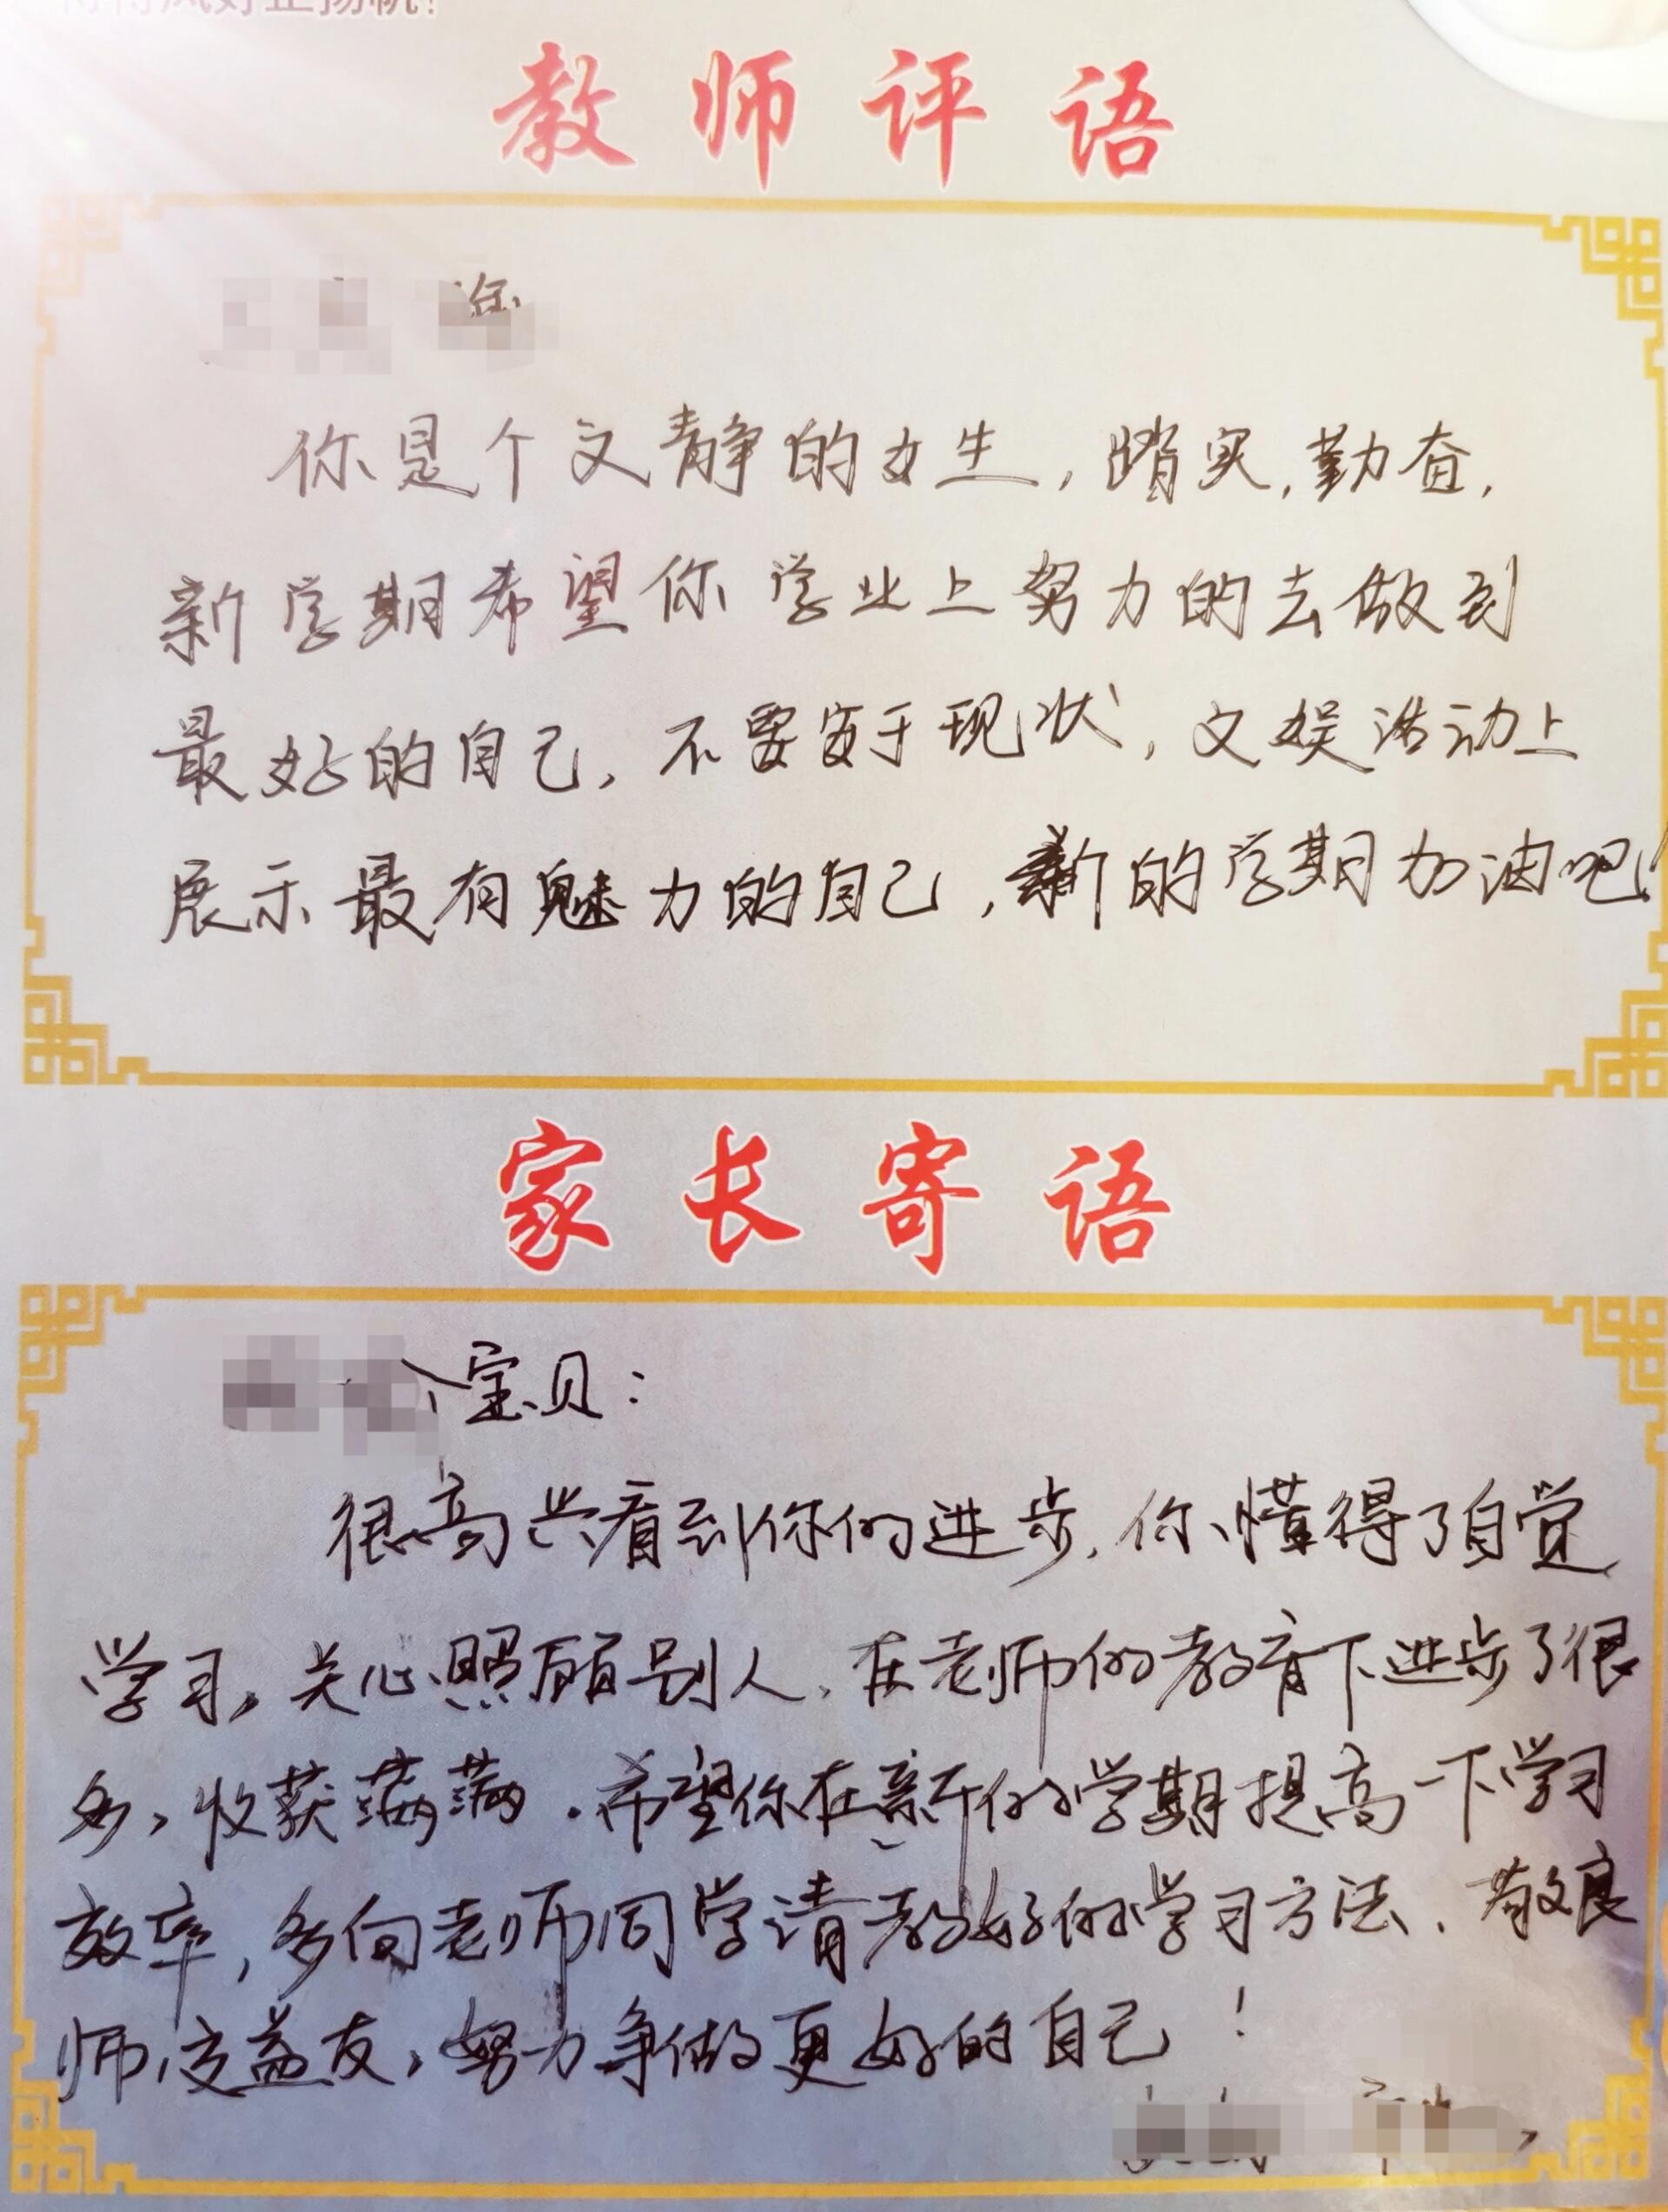 教师评语
你是个文静的女生，踏实，勤奋，
新学期希望你学业上努力的去做到
最好的自己，不要安于现状，文娱活动上
展示最有魅力的自己，新的学期加油吧！
家长寄语
宝贝：
很高兴看到你的进步，你懂得了自觉
学习，关心照顾别人，在老师的教育下进步了很
多，收获满满．希望你在新的学期提高一下学习
效率，多向老师同学请教好的学习方法、敬良
师，交益友，努力争做更好的自己！